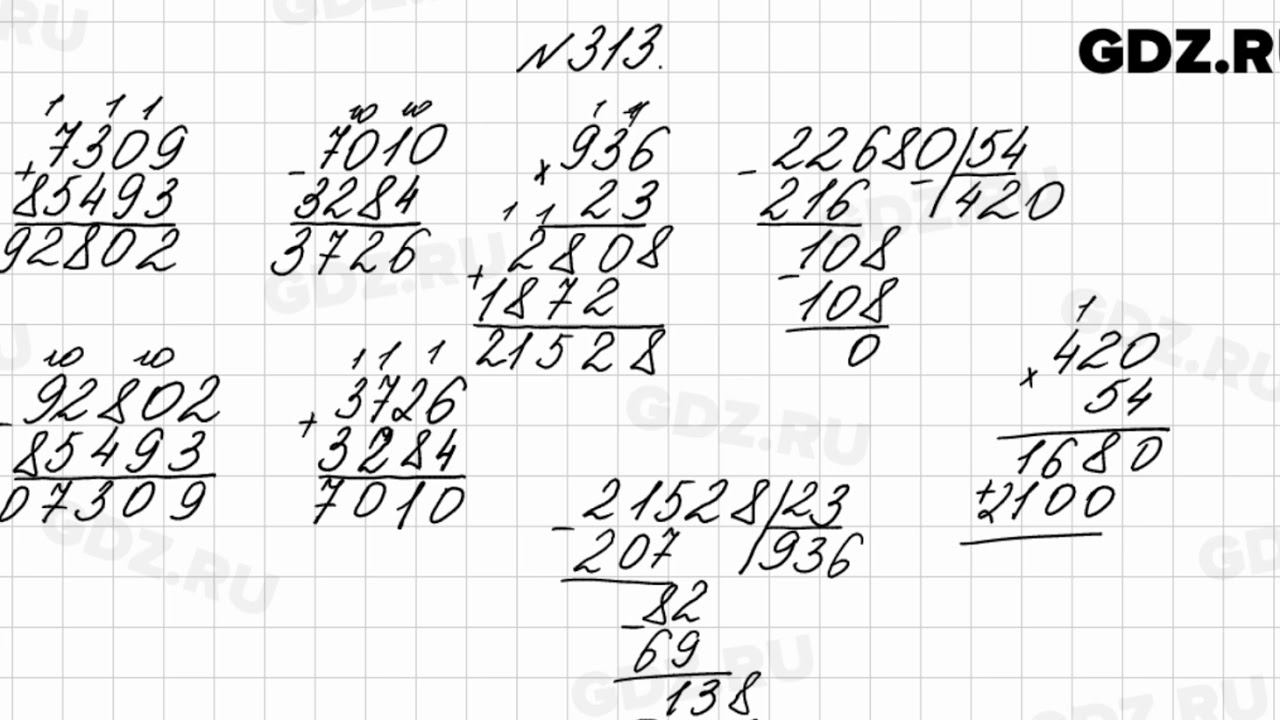 №313.
GDZ.R
1 1 1
7309
+
85493
92802
10 10
7010
-
3284
3726
1 1
936
×
23
1 1
2808
+
1872
21528
- 22680 | 54
216 - 420
108
-
108
0
10 10
92802
-
85493
07309
1 1 1
3726
+
3284
7010
21528 | 23
-
207 936
82
-
69
138
1
420
×
54
1680
+
2100
GDZ.RU
GDZ.RU
GDZ.RU
GDZ.RU
GDZ.RU
GDZ.RU